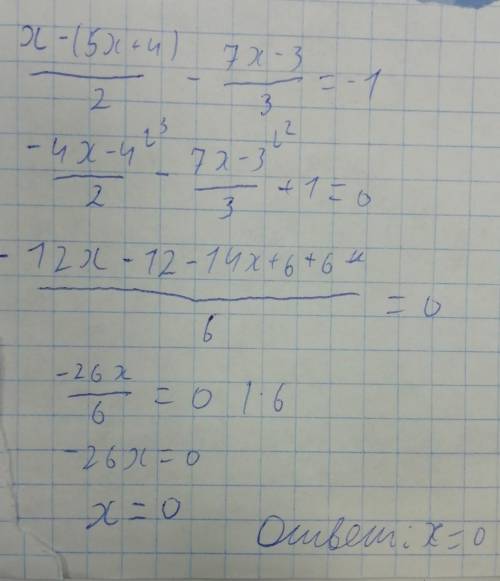 (x - (5x + 4))/2 - (7x - 3)/3 = -1
(-4x - 4)/2 ⌊3 - (7x - 3)/3 ⌊2 + 1 = 0
(-12x - 12 - 14x + 6 + 6)/6 = 0
-26x/6 = 0 | · 6
-26x = 0
x = 0
Ответ: x = 0